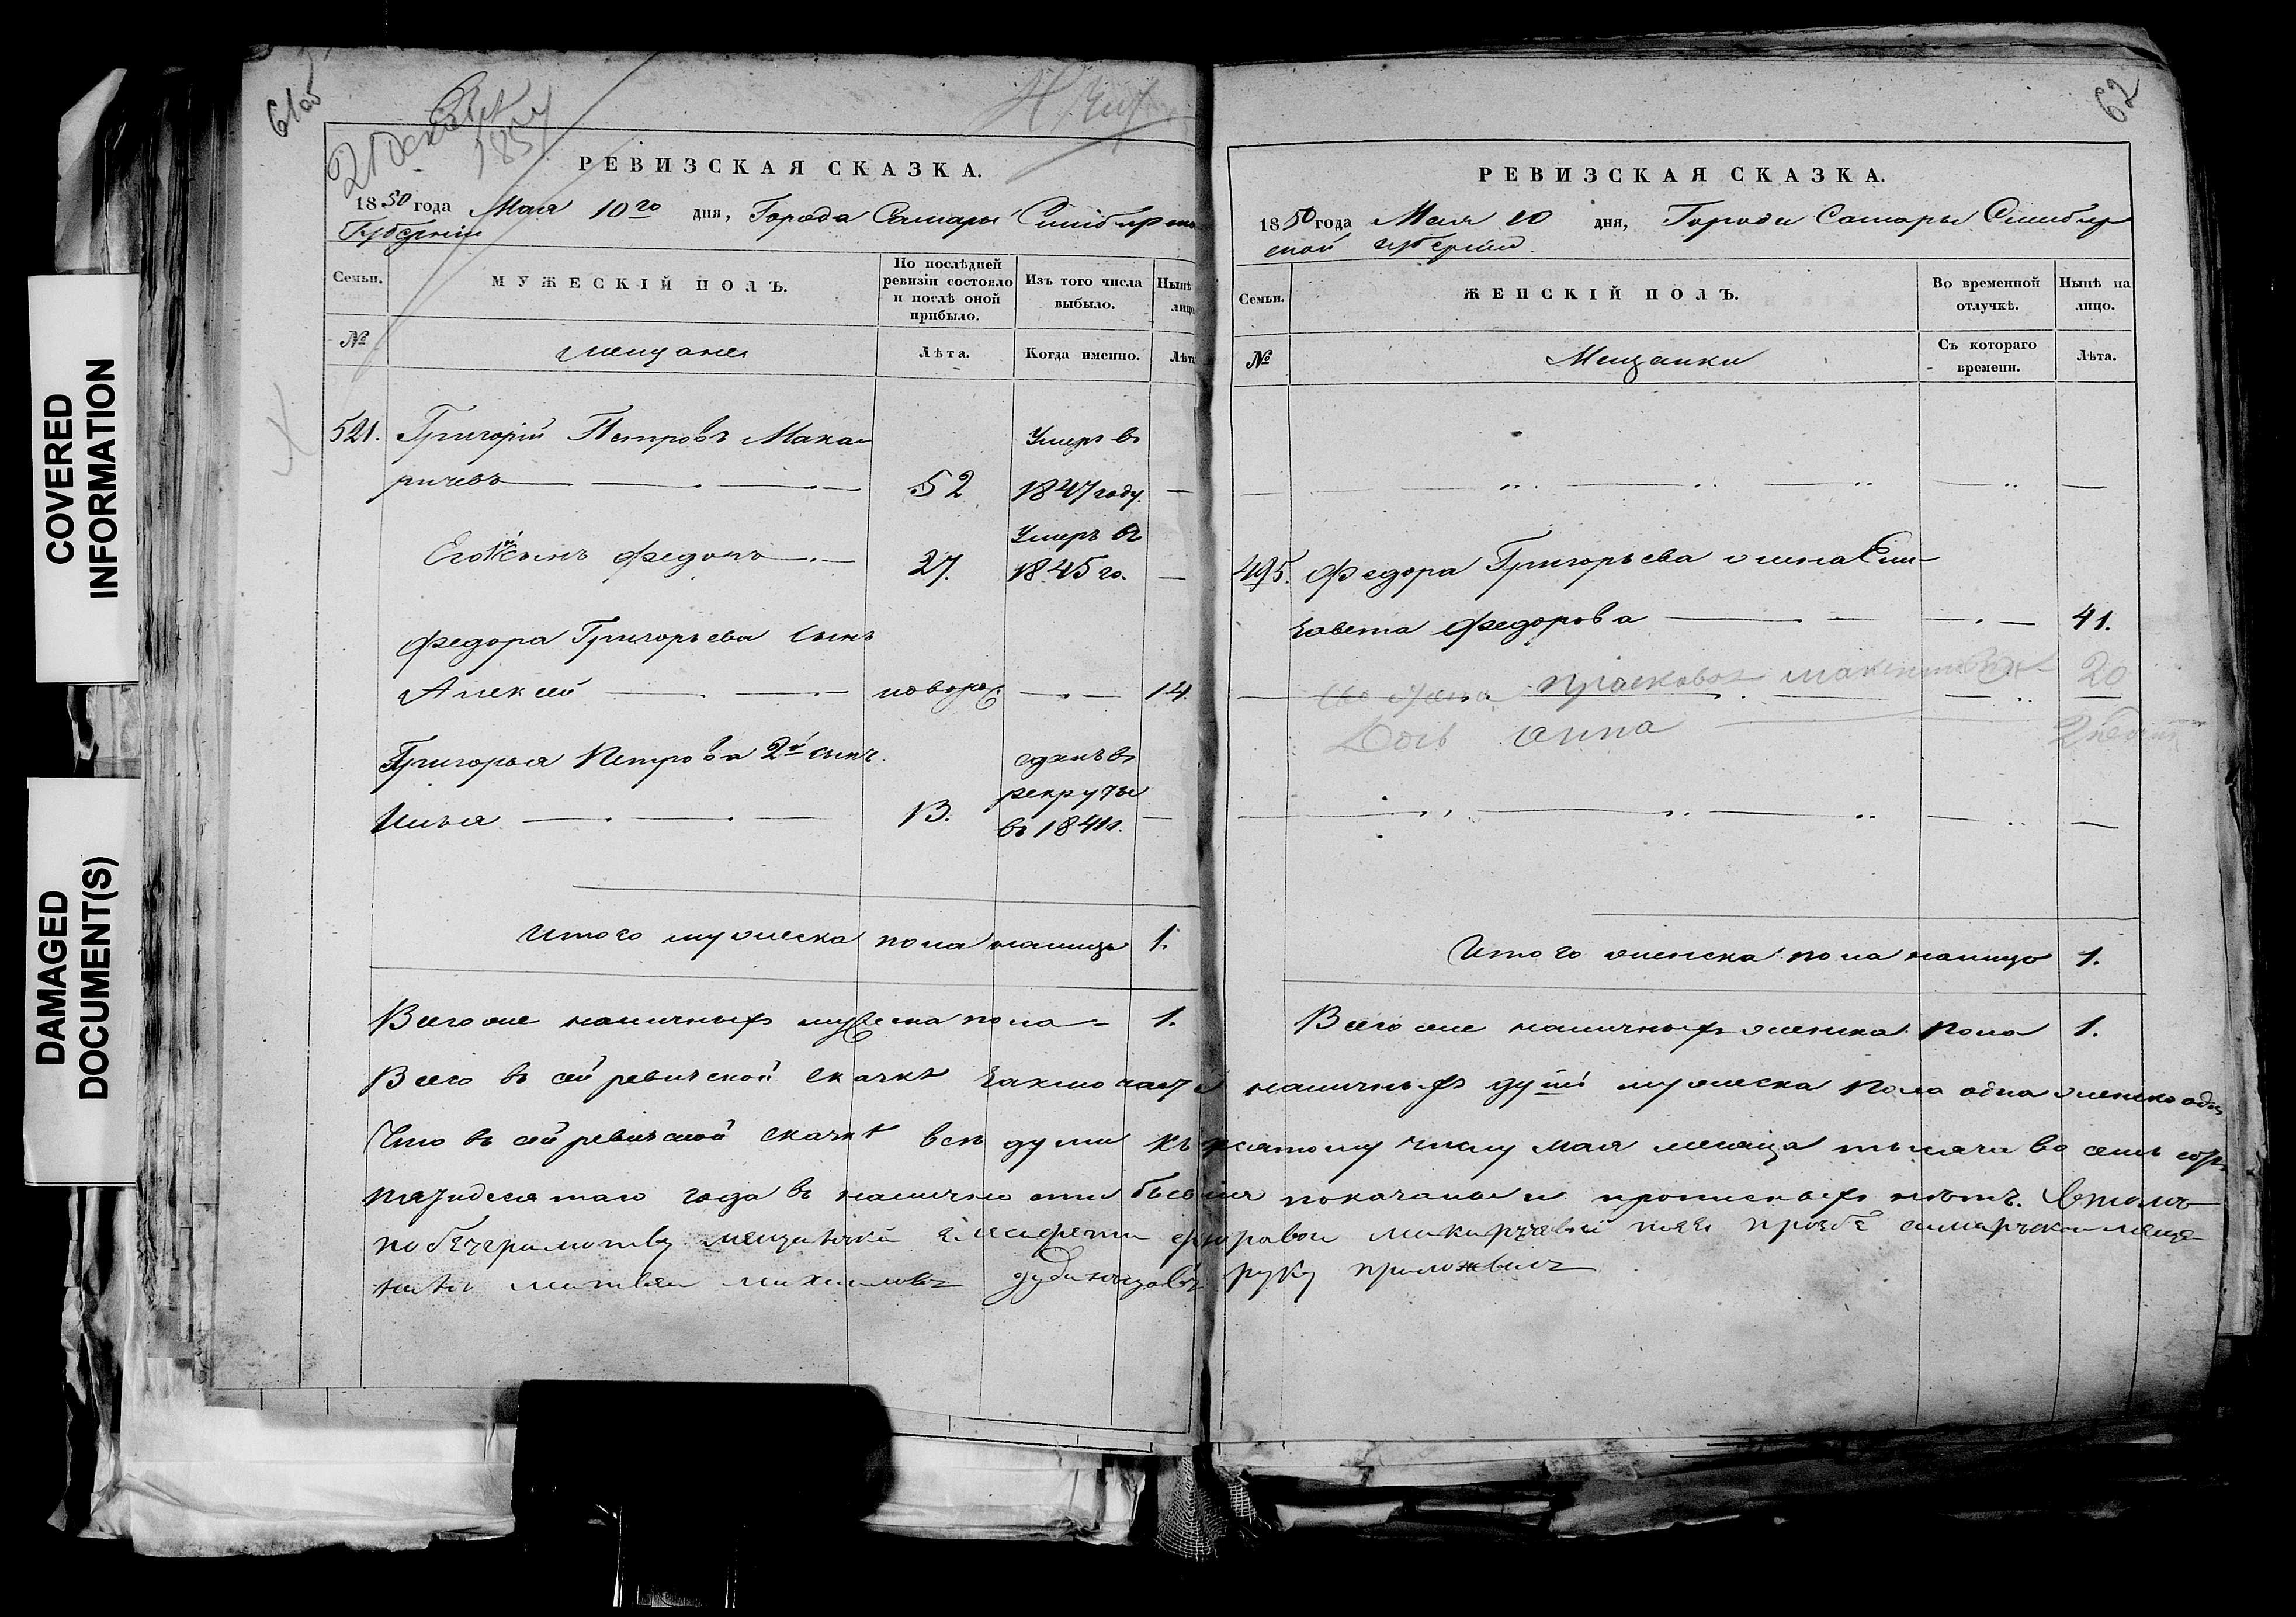 COVERED
INFORMATION
DAMAGED
DOCUMENT(S)
61об
21 декабря
1857
РЕВИЗСКАЯ СКАЗКА.
1850 года Мая 10го дня, Города Самары Симбирской
Губернии
Семьи.
МУЖЕСКІЙ ПОЛЪ.
По послѣдней ревизіи состояло и послѣ оной прибыло.
Изъ того числа выбыло.
Нынѣ лицо
№
мещане
Лѣта.
Когда именно.
Лѣта
521. Григорій Петровъ Мака
Умеръ въ
ричевъ 52 1847 году. —
Его 1й сынъ Федоръ 27. Умеръ въ
1845 го. —
Федора Григорьева сынъ
Алексей новорож. — 14.
Григорья Петрова 2й сынъ
Илья 13. сданъ въ
рекруты
въ 1841 г. —
Итого мужеска пола налицо 1.
Всего же наличныхъ мужеска пола 1.
62
РЕВИЗСКАЯ СКАЗКА.
1850 года Мая 10 дня, Города Самары Симбир
ской губерніи.
Семьи.
ЖЕНСКІЙ ПОЛЪ.
Во временной отлучкѣ.
Нынѣ на лицо.
№
Мещанки
Съ котораго времени.
Лѣта.
495. Федора Григорьева жена Ели-
завета Федорова 41.
жена Прасковья 20
Дочь Анна
Итого женска пола налицо 1.
Всего же наличныхъ женска пола 1.
Всего въ сей ревизской сказкѣ заключается наличныхъ душъ мужеска пола одна женска одна
Что въ сей ревизской сказкѣ все души къ десятому числу мая месяца тысяча восемь сотъ
пятидесятаго года въ наличности бывшія показаны и прописныхъ нѣтъ. Въ томъ
по безграмотству мещанки Елисаветы Федоровой Макаричевой по её прозбѣ самарской меща
нинъ Матвей Михаиловъ руку приложилъ